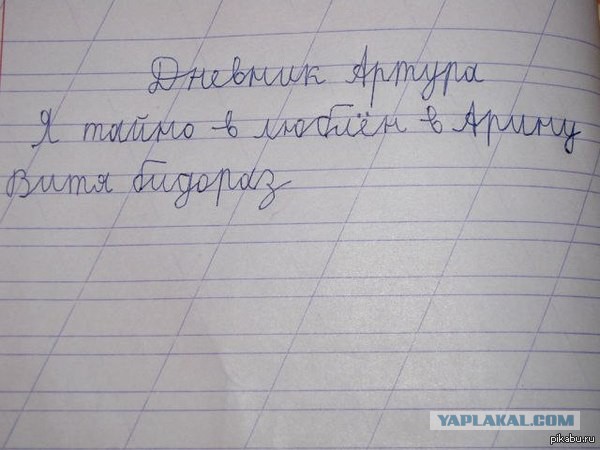 Дневник Артура
Я тайно в люблён в Арину
Витя бидораз
YAPLAKAL.COM
pikabu.ru